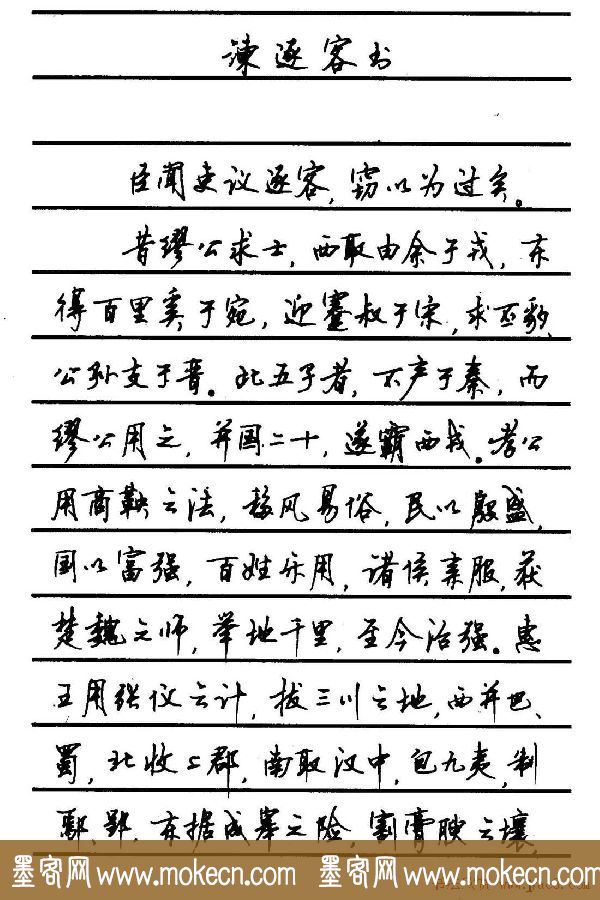 谏逐客书
臣闻吏议逐客，窃以为过矣。
昔缪公求士，西取由余于戎，东
得百里奚于宛，迎蹇叔于宋，求丕豹、
公孙支于晋。此五子者，不产于秦，而
缪公用之，并国二十，遂霸西戎。孝公
用商鞅之法，移风易俗，民以殷盛，
国以富强，百姓乐用，诸侯亲服，获
楚魏之师，举地千里，至今治强。惠
王用张仪之计，拔三川之地，西并巴、
蜀，北收上郡，南取汉中，包九夷，制
鄢、郢，东据成皋之险，割膏腴之壤，
墨客网 www.mokecn.com 墨客网 www.mokecn.com